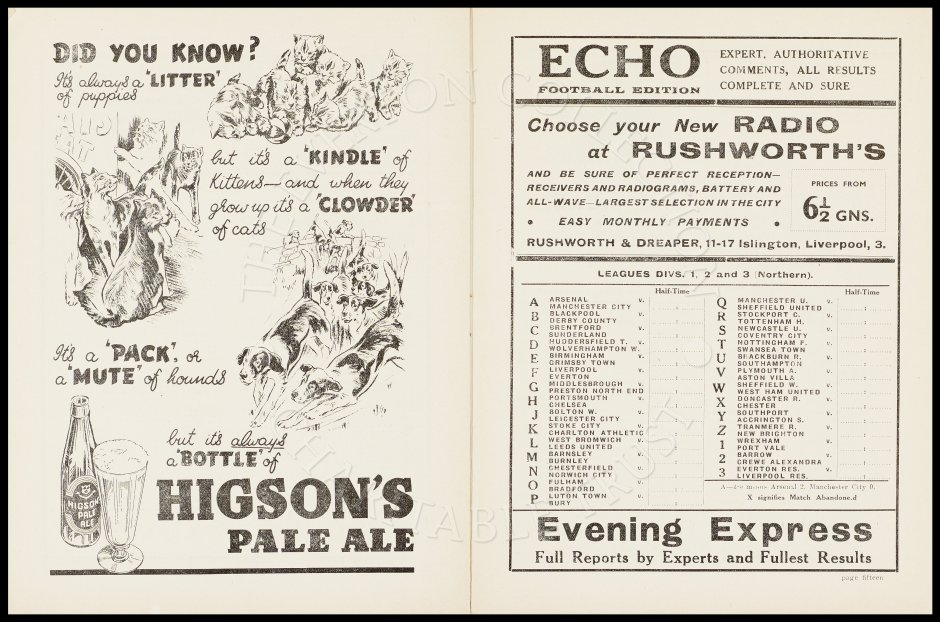 DID YOU KNOW?
It's always a 'LITTER'
of puppies
but it's a 'KINDLE' of
Kittens—and when they
grow up it's a 'CLOWDER'
of cats
It's a 'PACK', or
a 'MUTE' of hounds
but it's always
a 'BOTTLE' of
HIGSON'S
PALE ALE
HIGSONS
PALE
ALE
ECHO
FOOTBALL EDITION
EXPERT, AUTHORITATIVE
COMMENTS, ALL RESULTS
COMPLETE AND SURE
Choose your New RADIO
at RUSHWORTH'S
AND BE SURE OF PERFECT RECEPTION—
RECEIVERS AND RADIOGRAMS, BATTERY AND
ALL-WAVE—LARGEST SELECTION IN THE CITY
• EASY MONTHLY PAYMENTS •
PRICES FROM
6½ GNS.
RUSHWORTH & DREAPER, 11-17 Islington, Liverpool, 3.
LEAGUES DIVS. 1, 2 and 3 (Northern).
Half-Time
A ARSENAL v.
MANCHESTER CITY
B BLACKPOOL v.
DERBY COUNTY
C BRENTFORD v.
SUNDERLAND
D HUDDERSFIELD T. v.
WOLVERHAMPTON W.
E BIRMINGHAM v.
GRIMSBY TOWN
F LIVERPOOL v.
EVERTON
G MIDDLESBROUGH v.
PRESTON NORTH END
H PORTSMOUTH v.
CHELSEA
J BOLTON W. v.
LEICESTER CITY
K STOKE CITY v.
CHARLTON ATHLETIC
L WEST BROMWICH v.
LEEDS UNITED
M BARNSLEY v.
BURNLEY
N CHESTERFIELD v.
NORWICH CITY
O FULHAM v.
BRADFORD
P LUTON TOWN v.
BURY
Half-Time
Q MANCHESTER U. v.
SHEFFIELD UNITED
R STOCKPORT C. v.
TOTTENHAM H.
S NEWCASTLE U. v.
COVENTRY CITY
T NOTTINGHAM F. v.
SWANSEA TOWN
U BLACKBURN R. v.
SOUTHAMPTON
V PLYMOUTH A. v.
ASTON VILLA
W SHEFFIELD W. v.
WEST HAM UNITED
X DONCASTER R. v.
CHESTER
Y SOUTHPORT v.
ACCRINGTON S.
Z TRANMERE R. v.
NEW BRIGHTON
1 WREXHAM v.
PORT VALE
2 BARROW v.
CREWE ALEXANDRA
3 EVERTON RES. v.
LIVERPOOL RES.
means Arsenal 2, Manchester City 0.
X signifies Match Abandone.d
Evening Express
Full Reports by Experts and Fullest Results
page fifteen